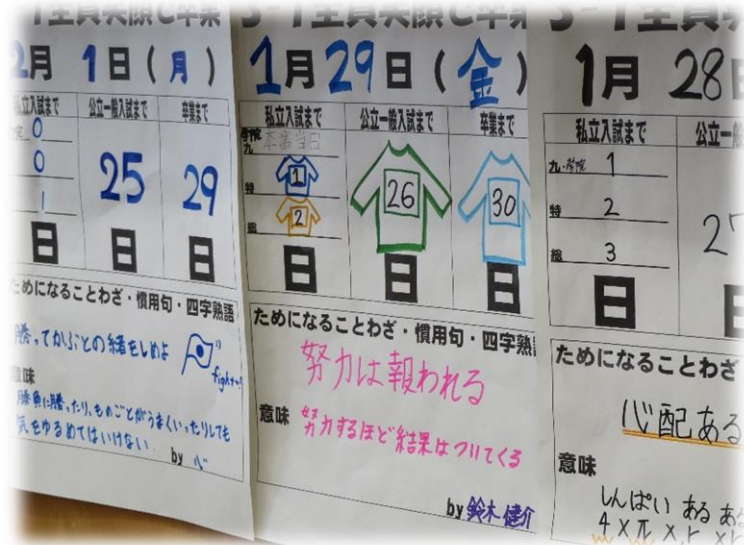 2月 1日(月)
私立入試まで 公立一般入試まで 卒業まで
0
0
1
25 29
日 日 日
ためになることわざ・慣用句・四字熟語
勝ってかぶとの緒をしめよ
fight
意味
勝負に勝ったり、ものごとがうまくいったりしても
気をゆるめてはいけない
by 心
3-1全員笑顔で卒業
1月29日(金)
私立入試まで 公立一般入試まで 卒業まで
学院
九 本番当日
特 1
総 2
26 30
日 日 日
ためになることわざ・慣用句・四字熟
努力は報われる
意味 努力するほど結果はついてくる
by 鈴木 健介
3-1全員笑
1月 28日
私立入試まで 公立一
九・学院 1
特 2
総 3
27
日 日
ためになることわざ
心配ある
意味
しんぱい ある ある
4×π×r×r